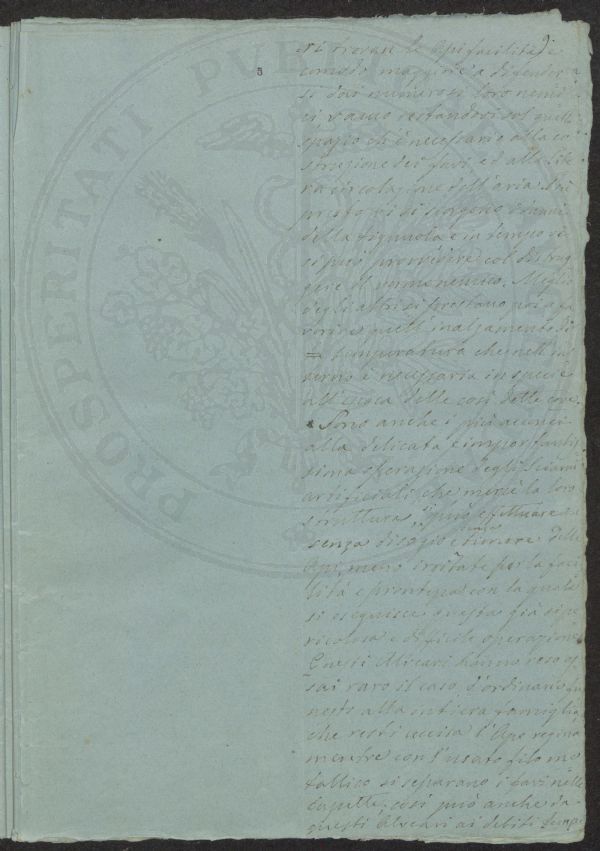 PROSPERITATI PUBLI
5
si trovan le Api facilità di
comodo maggiore a difender
si dai numerosi loro nemi
ci vanno restandovi sol quello
spazio ch'è necessario alla co
struzione dei favi, ed alla libe
ra circolazione dell'aria.
presto vi si scorgono i danni
della tignuola e in tempo
si può provvedere col distrug
gere il verme nemico. Meglio
degli altri si prestano poi a fa
vorire quell'inalzamento di
temperatura che nell'in
terno è necessaria in specie
all'epoca delle così dette cove.
Sono anche i più acconci
alla delicata e importantis
sima operazione degli sciami
artificiali, che mercè la loro
struttura, si può effettuare
senza disagio e timore delle
Api, meno irritate per la faci
lità e prontezza con la quale
si eseguisce questa già si pe
ricolosa e difficile operazione
Questi Alveari hanno reso as
sai raro il caso, d'ordinario fu
nesto alla intiera famiglia
che resti uccisa l'Ape regina
mentre con l'usato filo me
tallico si separano i favi nelle
Capelle; così può anche da
questi Alveari ai debiti tempi